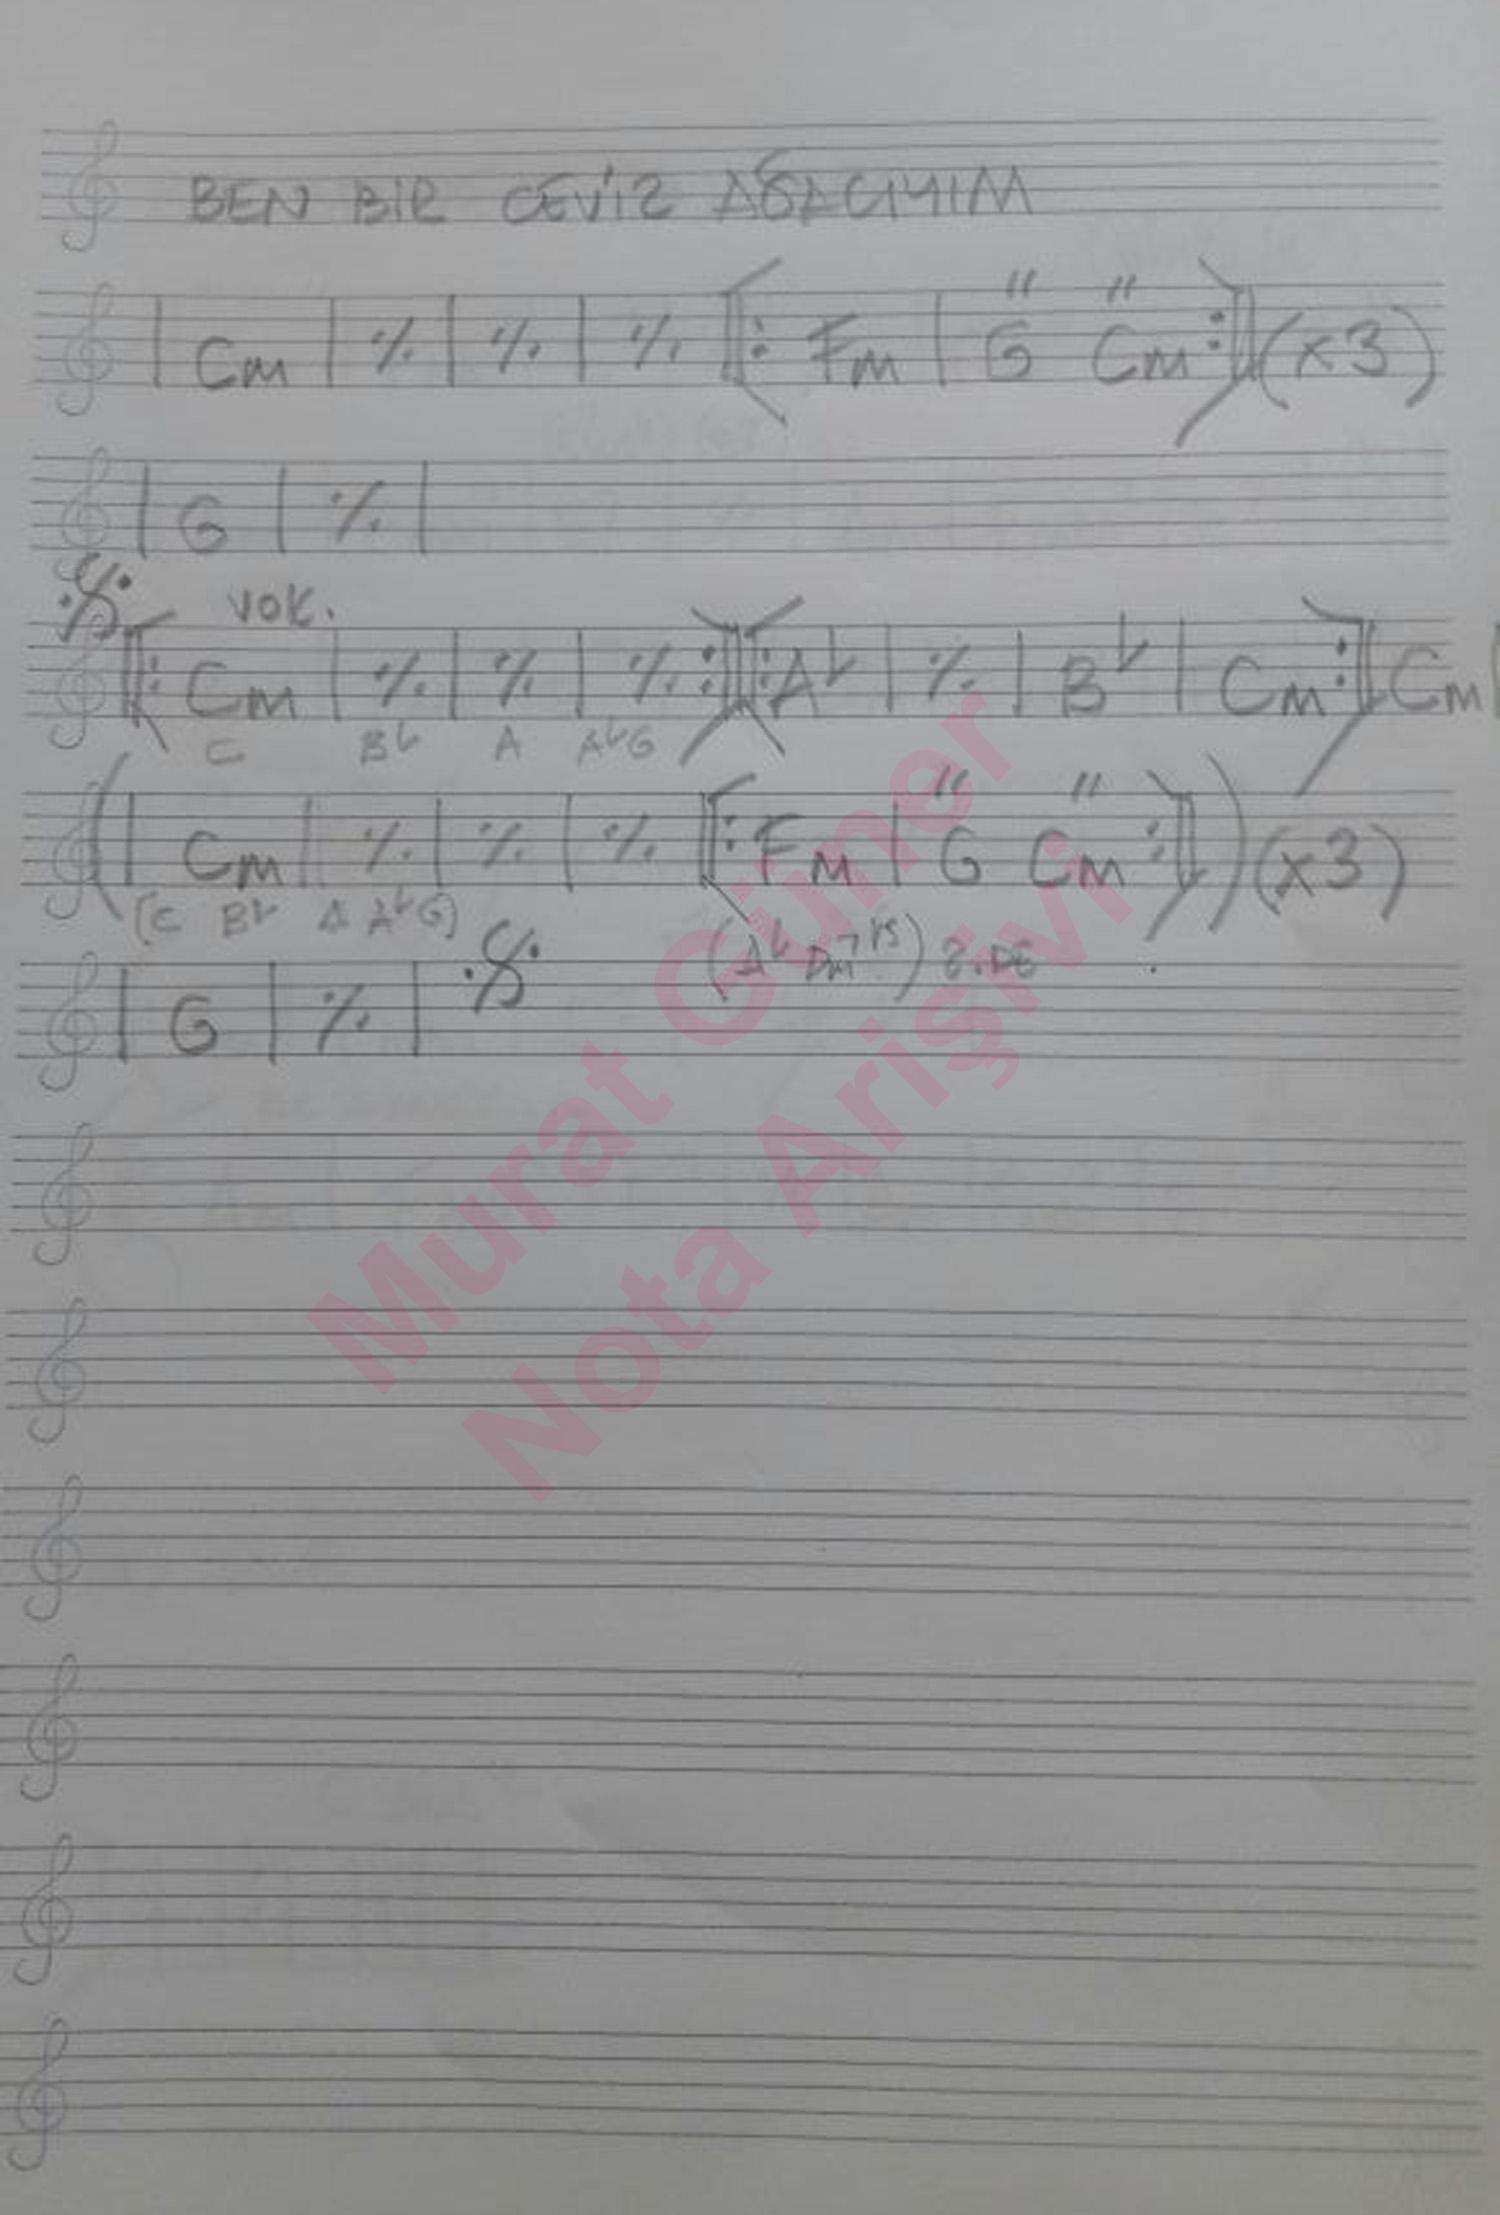 BEN BİR CEVİZ AĞACIYIM
| Cm | ٪ | ٪ | ٪ |: Fm | G Cm :| (x3)
| G | ٪ |
VOK.
|: Cm | ٪ | ٪ | ٪ :|: A♭ | ٪ | B♭ | Cm :| Cm |
C B♭ A A♭ G
( | Cm | ٪ | ٪ | ٪ |: Fm | G Cm :| ) (x3)
(C B♭ A A♭ G)
(A♭ Dm7♭5) 2.DE
| G | ٪ |
Murat Güner
Nota Arişivi